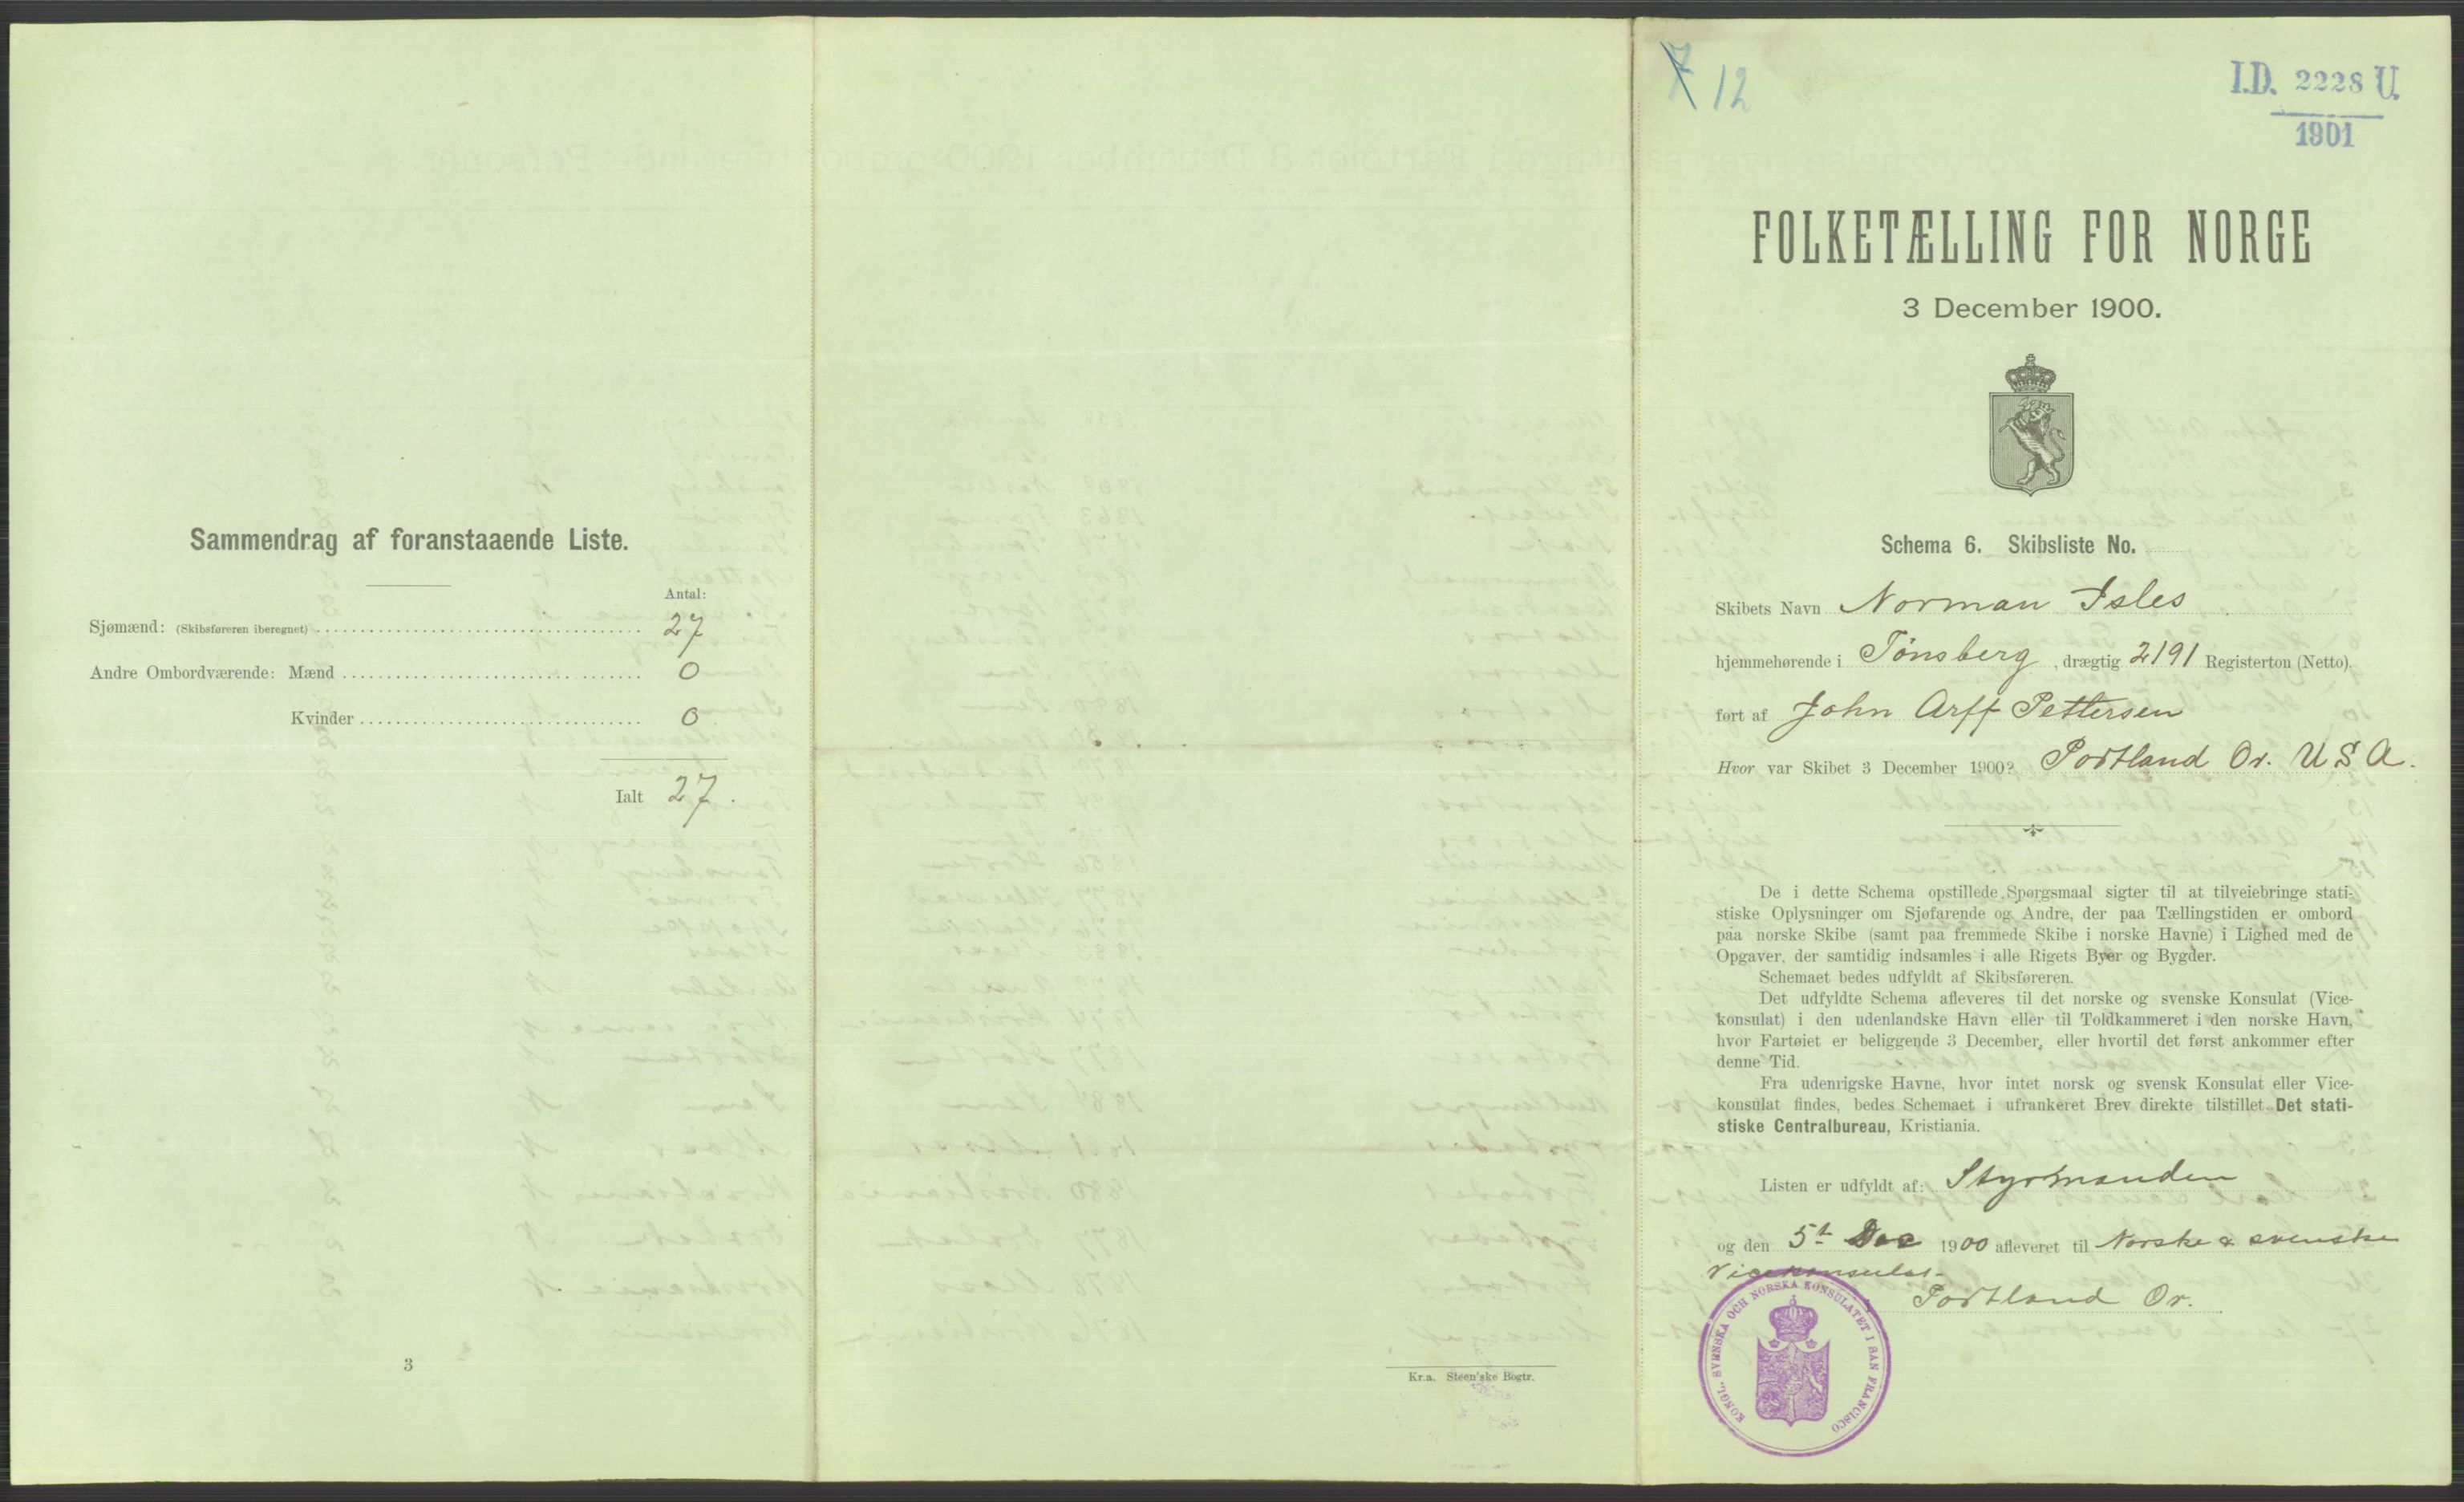 Sammendrag af foranstaaende Liste.
Antal:
Sjømænd: (Skibsføreren iberegnet) 27
Andre Ombordværende: Mænd 0
Kvinder 0
Ialt 27.
3
Kr.a. Steen'ske Bogtr.
7 12
I.D. 2228 U.
1901
FOLKETÆLLING FOR NORGE
3 December 1900.
Schema 6. Skibsliste No.
Skibets Navn Norman Isles
hjemmehørende i Tönsberg, drægtig 2191 Registerton (Netto).
ført af John Arff Pettersen
Hvor var Skibet 3 December 1900? Portland Or. U S A.
De i dette Schema opstillede Spørgsmaal sigter til at tilveiebringe stati-
stiske Oplysninger om Sjøfarende og Andre, der paa Tællingstiden er ombord
paa norske Skibe (samt paa fremmede Skibe i norske Havne) i Lighed med de
Opgaver, der samtidig indsamles i alle Rigets Byer og Bygder.
Schemaet bedes udfyldt af Skibsføreren.
Det udfyldte Schema afleveres til det norske og svenske Konsulat (Vice-
konsulat) i den udenlandske Havn eller til Toldkammeret i den norske Havn,
hvor Fartøiet er beliggende 3 December, eller hvortil det først ankommer efter
denne Tid.
Fra udenrigske Havne, hvor intet norsk og svensk Konsulat eller Vice-
konsulat findes, bedes Schemaet i ufrankeret Brev direkte tilstillet Det stati-
stiske Centralbureau, Kristiania.
Listen er udfyldt af: Styrmanden
og den 5t Dec 1900 afleveret til Norske & svenske
Vicekonsulat-
Portland Or.
KONGL. SVENSKA OCH NORSKA KONSULATET I SAN FRANCISCO